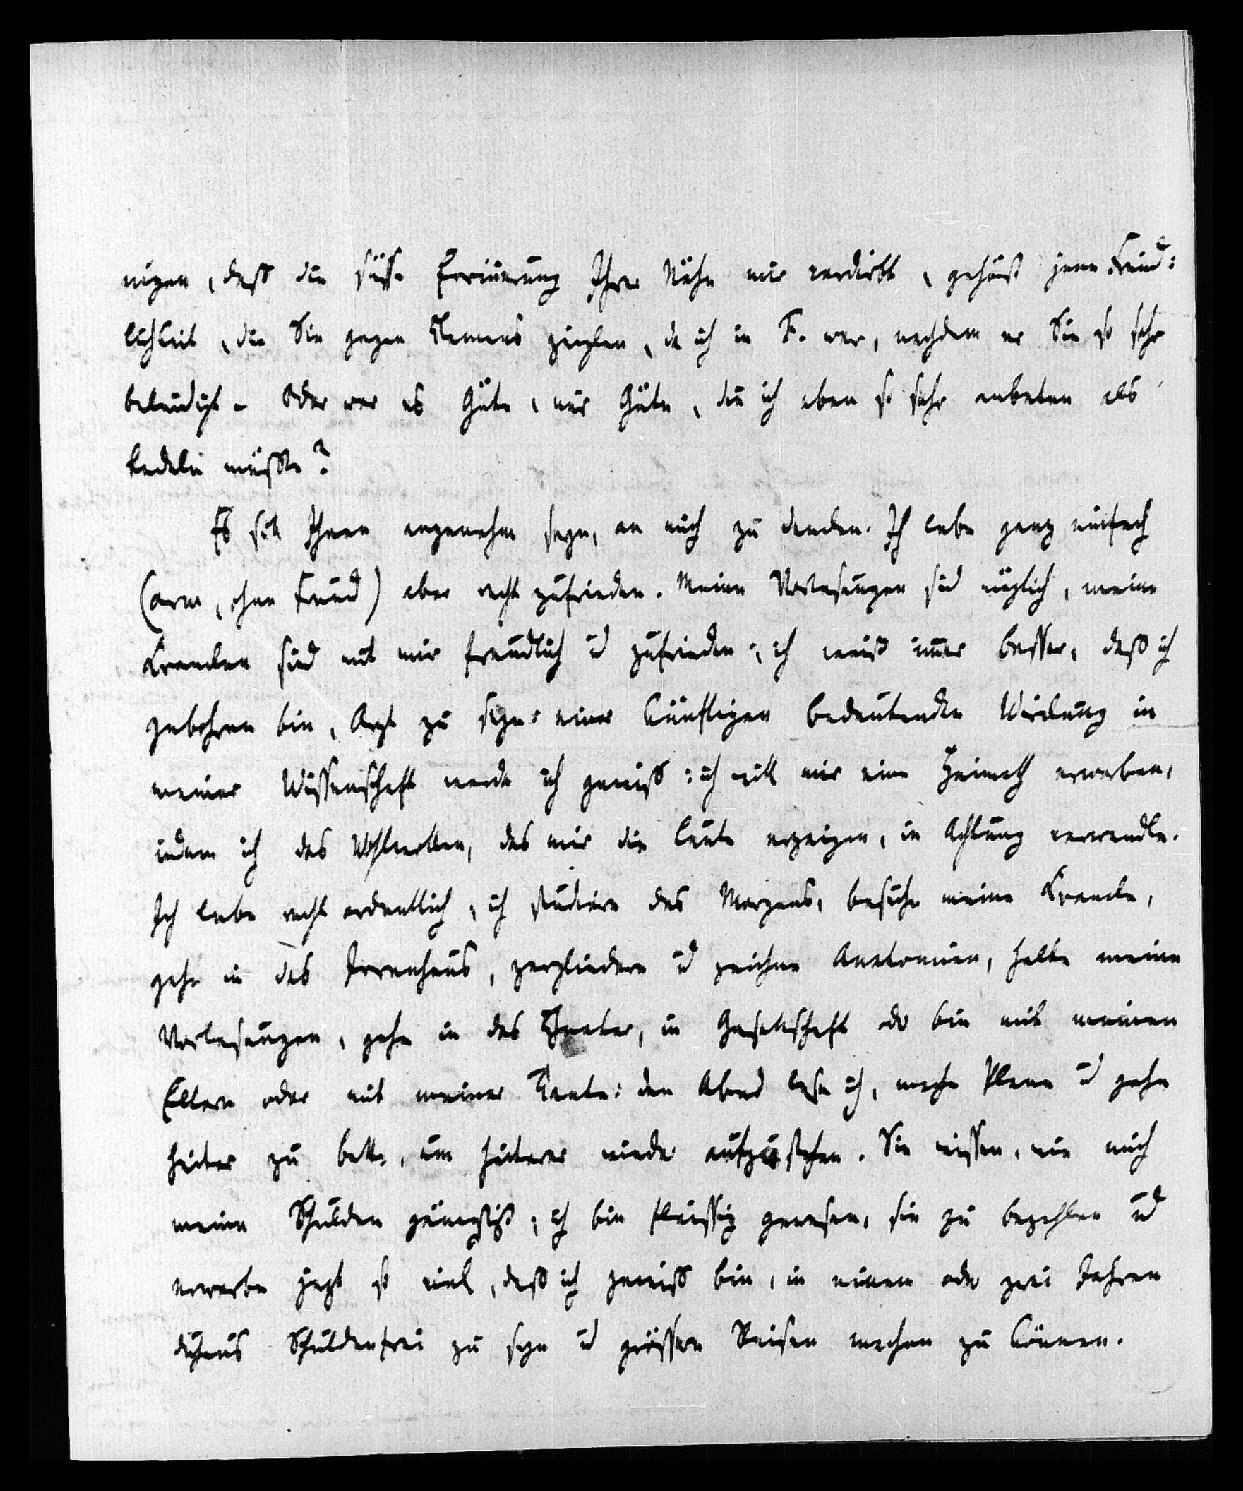 nigen, daß die süsse Erinnerung Ihrer Nähe mir verdirbt, gehäuß jene Freund:
lichkeit, die Sie gegen Clemens zeigten, da ich in F. war, nachdem er Sie so sehr
beleidigt. Oder war es Güte, nur Güte, die ich eben so sehr anbeten als
tadeln müßte?
Es soll Ihnen angenehm seyn, an mich zu dencken. Ich lebe ganz einfach
(arm, ohne Freund) aber recht zufrieden. Meine Vorlesungen sind nüzlich, meine
Krancken sind mit mir freundlich ud zufrieden; ich weiß immer besser, daß ich
gebohren bin, Arzt zu seyn: einer künftigen bedeutenden Wirckung in
meiner Wissenschaft werde ich gewiß: ich will mir eine Heimath erwerben,
indem ich das Wohlwollen, das mir die Leute erzeigen, in Achtung verwandle.
Ich lebe recht ordentlich, ich studiere des Morgens, besuche meine Krancke,
gehe in das Irrenhaus, zergliedere ud zeichne Anatomien, halte meine
Vorlesungen, gehe in das Theater, in Gesellschaft oder bin mit meinen
Eltern oder mit meiner Tante: den Abend lese ich, mache Plane ud gehe
heiter zu bette, um heiterer wieder aufzustehen. Sie wissen, wie mich
meine Schulden geängstigt; ich bin fleissig gewesen, sie zu bezahlen ud
erwerbe jezt so viel, daß ich gewiß bin, in einem oder zwei Jahren
durchaus Schuldenfrei zu seyn ud grössere Reisen machen zu können.